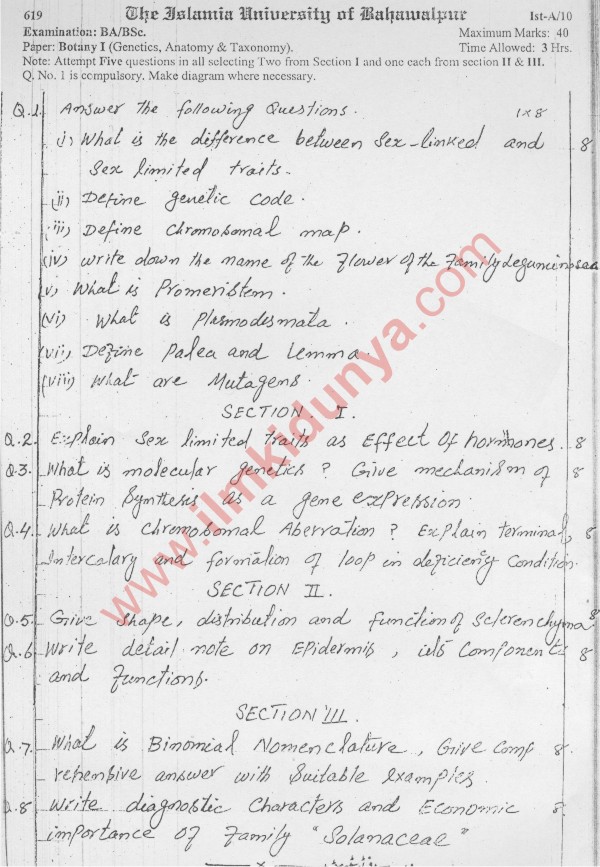 619 The Islamia University of Bahawalpur Ist-A/10
Examination: BA/BSc. Maximum Marks: 40
Paper: Botany I (Genetics, Anatomy & Taxonomy). Time Allowed: 3 Hrs.
Note: Attempt Five questions in all selecting Two from Section I and one each from section II & III.
Q. No. 1 is compulsory. Make diagram where necessary.
Q.1. Answer the following Questions. 1x8
i) What is the difference between Sex-linked and 8
Sex limited traits.
(ii) Define genetic code.
(iii) Define Chromosomal map.
(iv) write down the name of the Flower of the Family Leguminosae
(v) What is Promeristem.
(vi) What is Plasmodismata.
(vii) Define Palea and Lemma.
(viii) What are Mutagens.
SECTION I.
Q.2. Explain Sex limited traits as Effect of hormones. 8
Q.3. What is molecular genetics? Give mechanism of 8
Protein Synthesis as a gene expression.
Q.4. What is Chromosomal Aberration? Explain terminal, 8
Intercalary and formation of loop in deficiency Condition.
SECTION II.
Q.5. Give Shape, distribution and function of Sclerenchyma 8
Q.6. Write detail note on Epidermis, its Components 8
and Functions.
SECTION III.
Q.7. What is Binomial Nomenclature, Give Comp 8
rehensive answer with Suitable examples.
Q.8. Write diagnostic Characters and Economic 8.
importance of Family "Solanaceae"
www.ilmkidunya.com